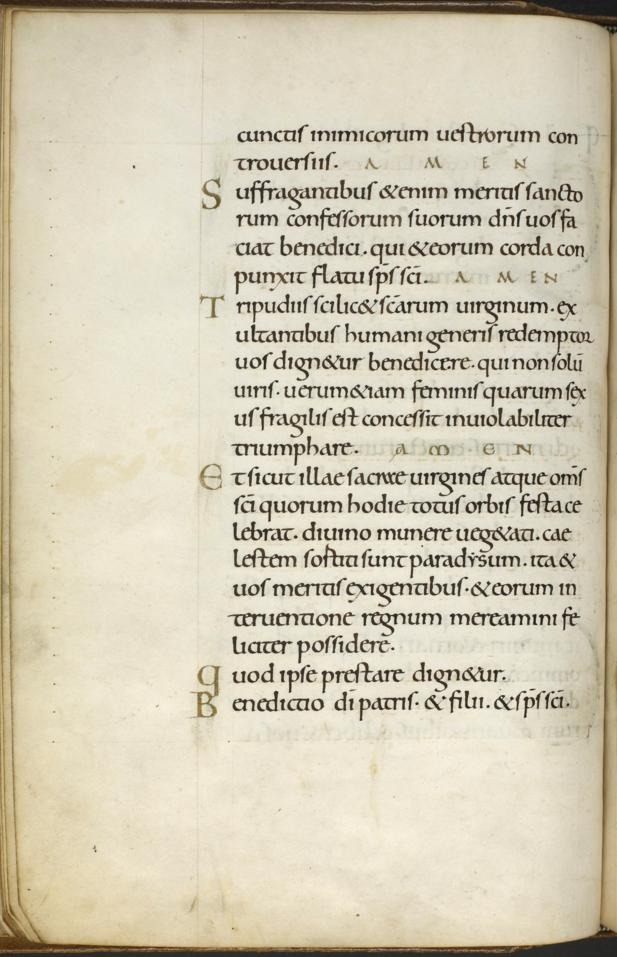 cunctis inimicorum uestrorum con
trouersiis. A M E N
Suffragantibus &enim meritis sancto
rum confessorum suorum dn̄s uos fa
ciat benedici. qui &eorum corda con
punxit flatu sp̄s sc̄i. A M E N
Tripudiis scilic& sc̄arum uirginum. ex
ultantibus humani generis redemptor
uos dign&ur benedicere. qui non solū
uiris. uerum&iam feminis quarum sex
us fragilis est concessit inuiolabiliter
triumphare. A M E N
Et sicut illae sacrae uirgines atque om̄s
sc̄i quorum hodie totus orbis festa ce
lebrat. diuino munere ueg&ati. cae
lestem sortiti sunt paradẏsum. ita &
uos meritis exigentibus. &eorum in
teruentione regnum mereamini fe
liciter possidere.
Quod ipse prestare dign&ur.
Benedictio dī patris. & filii. & sp̄s sc̄i.